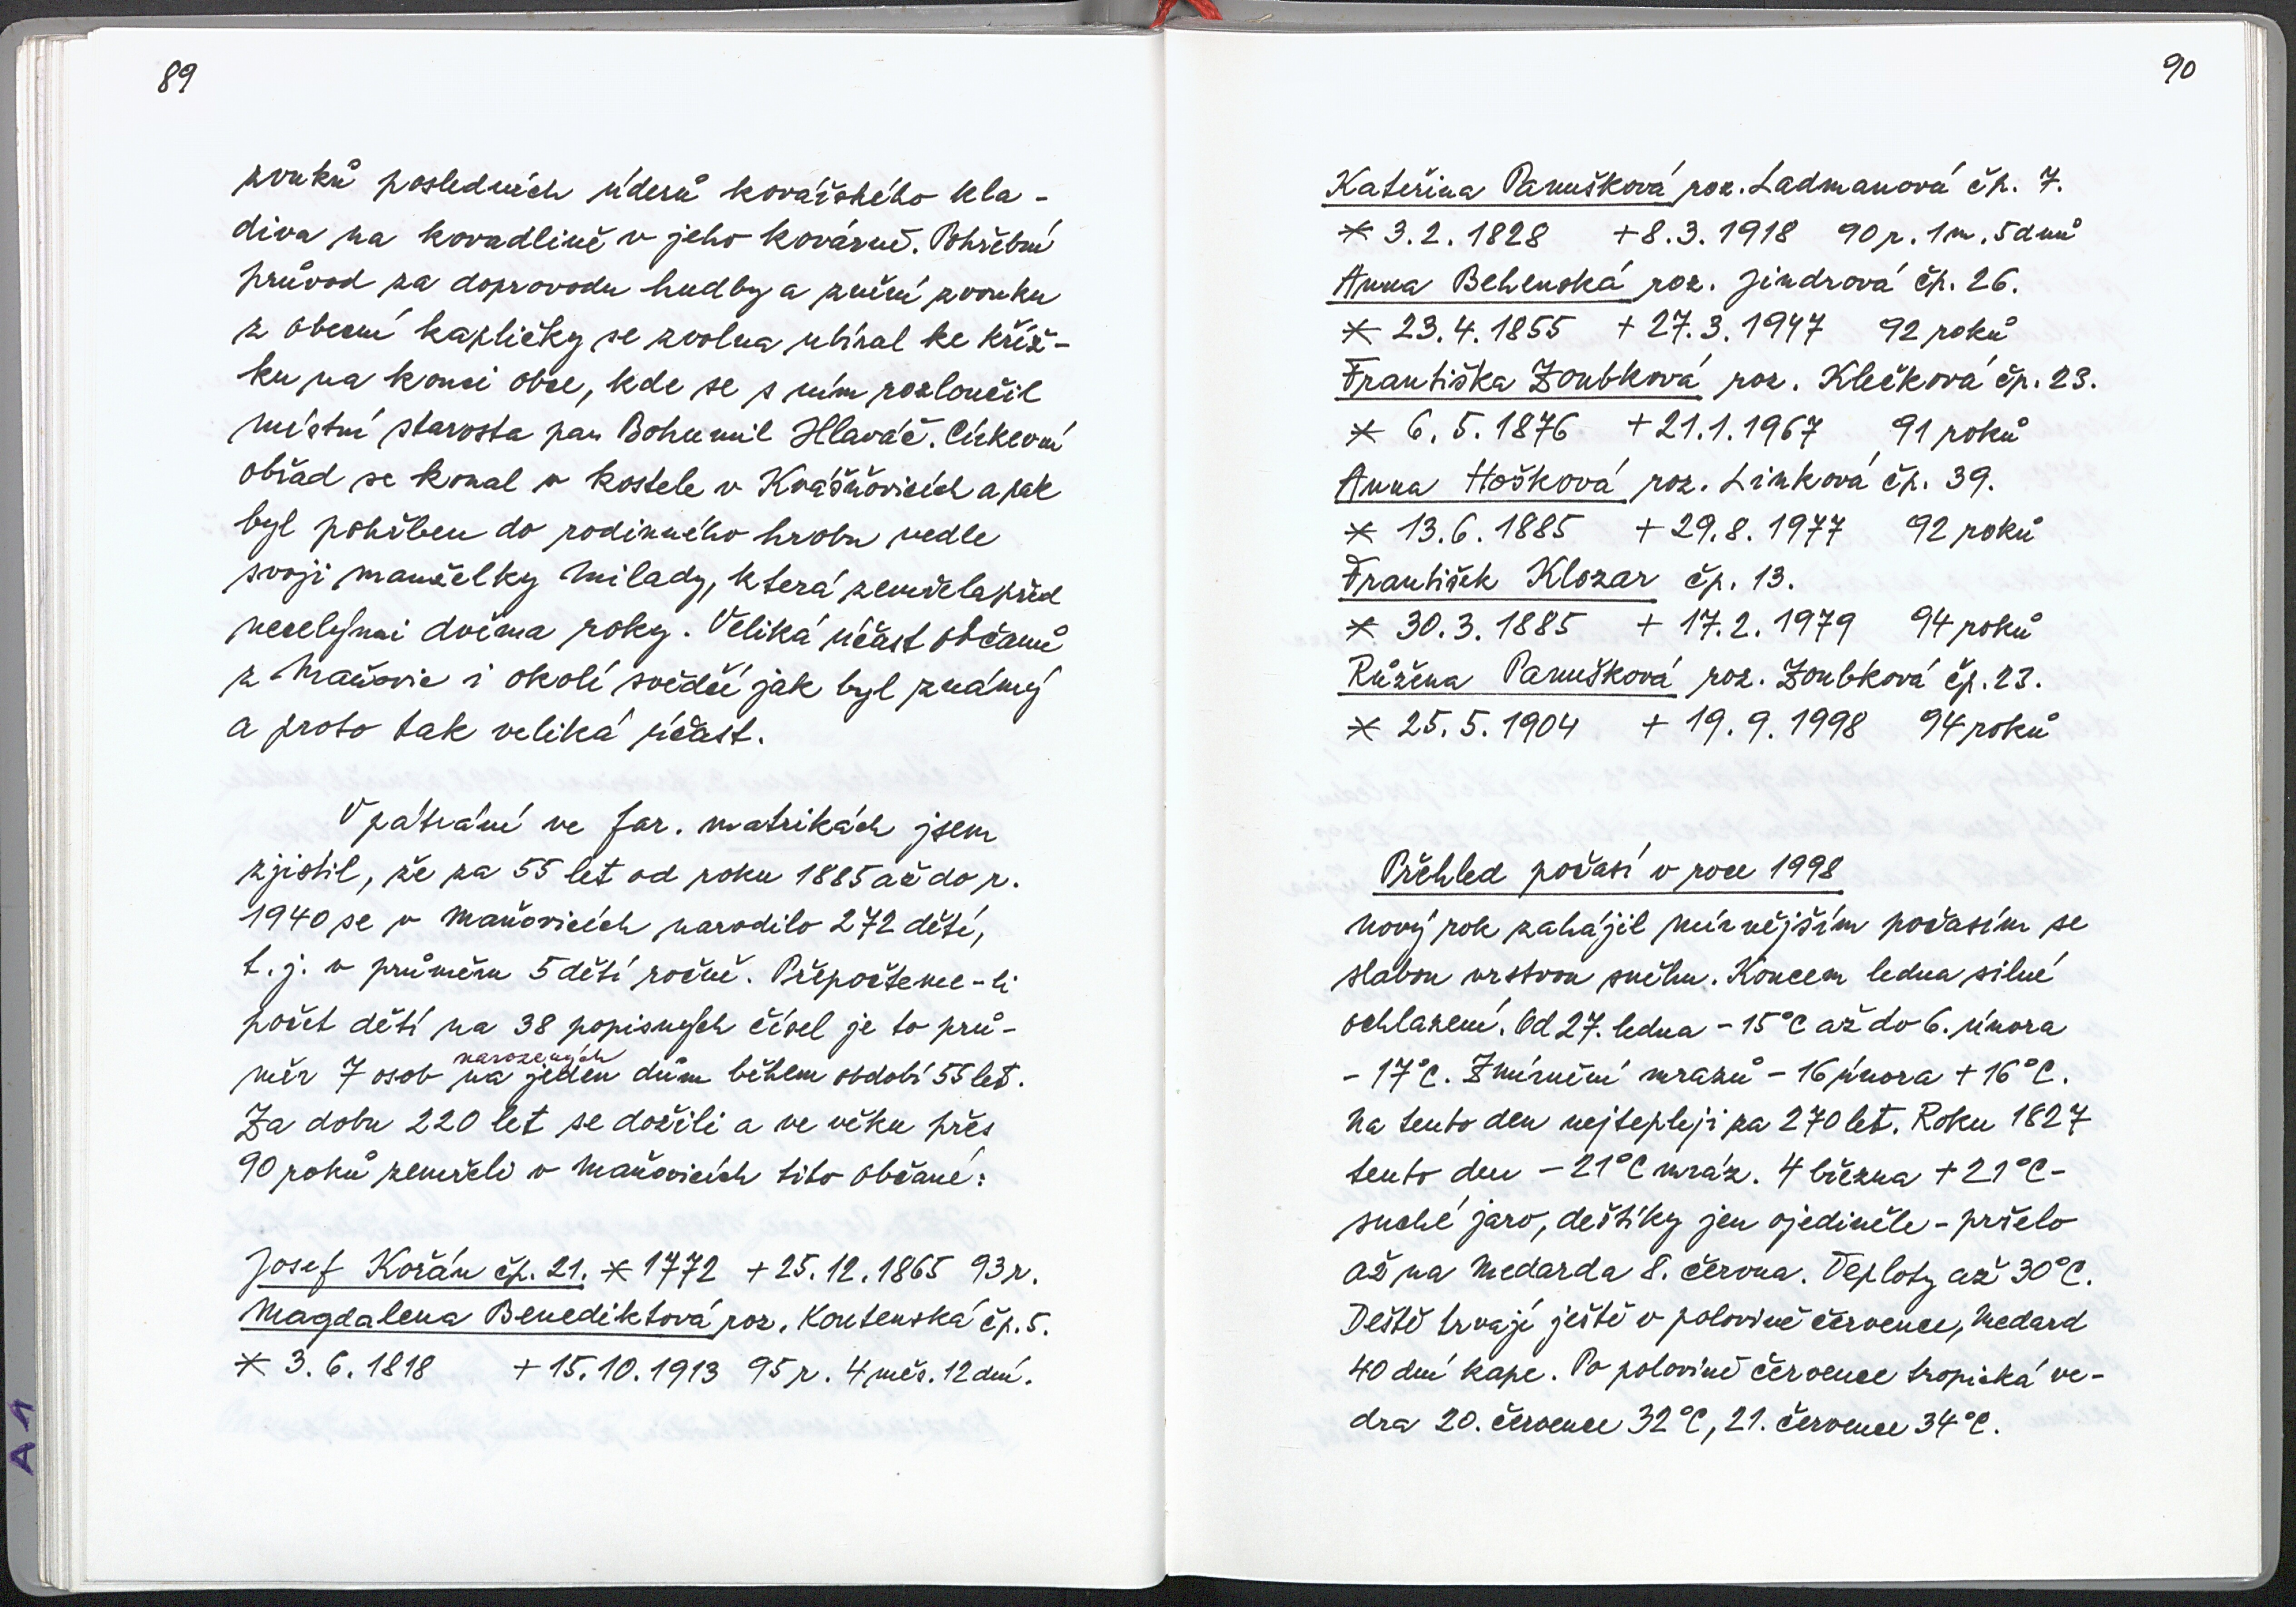 89
zvuků posledních úderů kovářského kla-
diva na kovadlině v jeho kovárně. Pohřební
průvod za doprovodu hudby a znění zvonku
z obecní kapličky se zvolna ubíral ke kříž-
ku na konci obce, kde se s ním rozloučil
místní starosta pan Bohumil Hlaváč. Církevní
obřad se konal v kostele v Kvášňovicích a pak
byl pohřben do rodinného hrobu vedle
svojí manželky Milady, která zemřela před
necelými dvěma roky. Veliká účast občanů
z Maňovic i okolí svědčí jak byl známý
a proto tak veliká účast.
V pátrání ve far. matrikách jsem
zjistil, že za 55 let od roku 1885 až do r.
1940 se v Maňovicích narodilo 272 dětí,
t. j. v průměru 5 dětí ročně. Přepočteme-li
počet dětí na 38 popisných čísel je to prů-
narozených
měr 7 osob na jeden dům během období 55 let.
Za dobu 220 let se dožili a ve věku přes
90 roků zemřeli v Maňovicích tito občané:
Josef Kořán čp. 21. * 1772 + 25. 12. 1865 93 r.
Magdalena Benediktová roz. Koutenská čp. 5.
* 3. 6. 1818 + 15. 10. 1913 95 r. 4 měs. 12 dní.
A1
90
Kateřina Panušková roz. Ladmanová čp. 7.
* 3. 2. 1828 + 8. 3. 1918 90 r. 1 m. 5 dnů
Anna Behenská roz. Jindrová čp. 26.
* 23. 4. 1855 + 27. 3. 1947 92 roků
Františka Zoubková roz. Klečková čp. 23.
* 6. 5. 1876 + 21. 1. 1967 91 roků
Anna Hošková roz. Linková čp. 39.
* 13. 6. 1885 + 29. 8. 1977 92 roků
František Klozar čp. 13.
* 30. 3. 1885 + 17. 2. 1979 94 roků
Růžena Panušková roz. Zoubková čp. 23.
* 25. 5. 1904 + 19. 9. 1998 94 roků
Přehled počasí v roce 1998
Nový rok zahájil mírnějším počasím se
slabou vrstvou sněhu. Koncem ledna silné
ochlazení. Od 27. ledna - 15°C až do 6. února
- 17°C. Zmírnění mrazů - 16 února + 16°C.
Na tento den nejtepleji za 270 let. Roku 1827
tento den - 21°C mráz. 4 března + 21°C -
suché jaro, deštíky jen ojediněle - pršelo
až na Medarda 8. června. Teploty až 30°C.
Deště trvají ještě v polovině července, Medard
40 dní kape. Po polovině července tropická ve-
dra 20. července 32°C, 21. července 34°C.